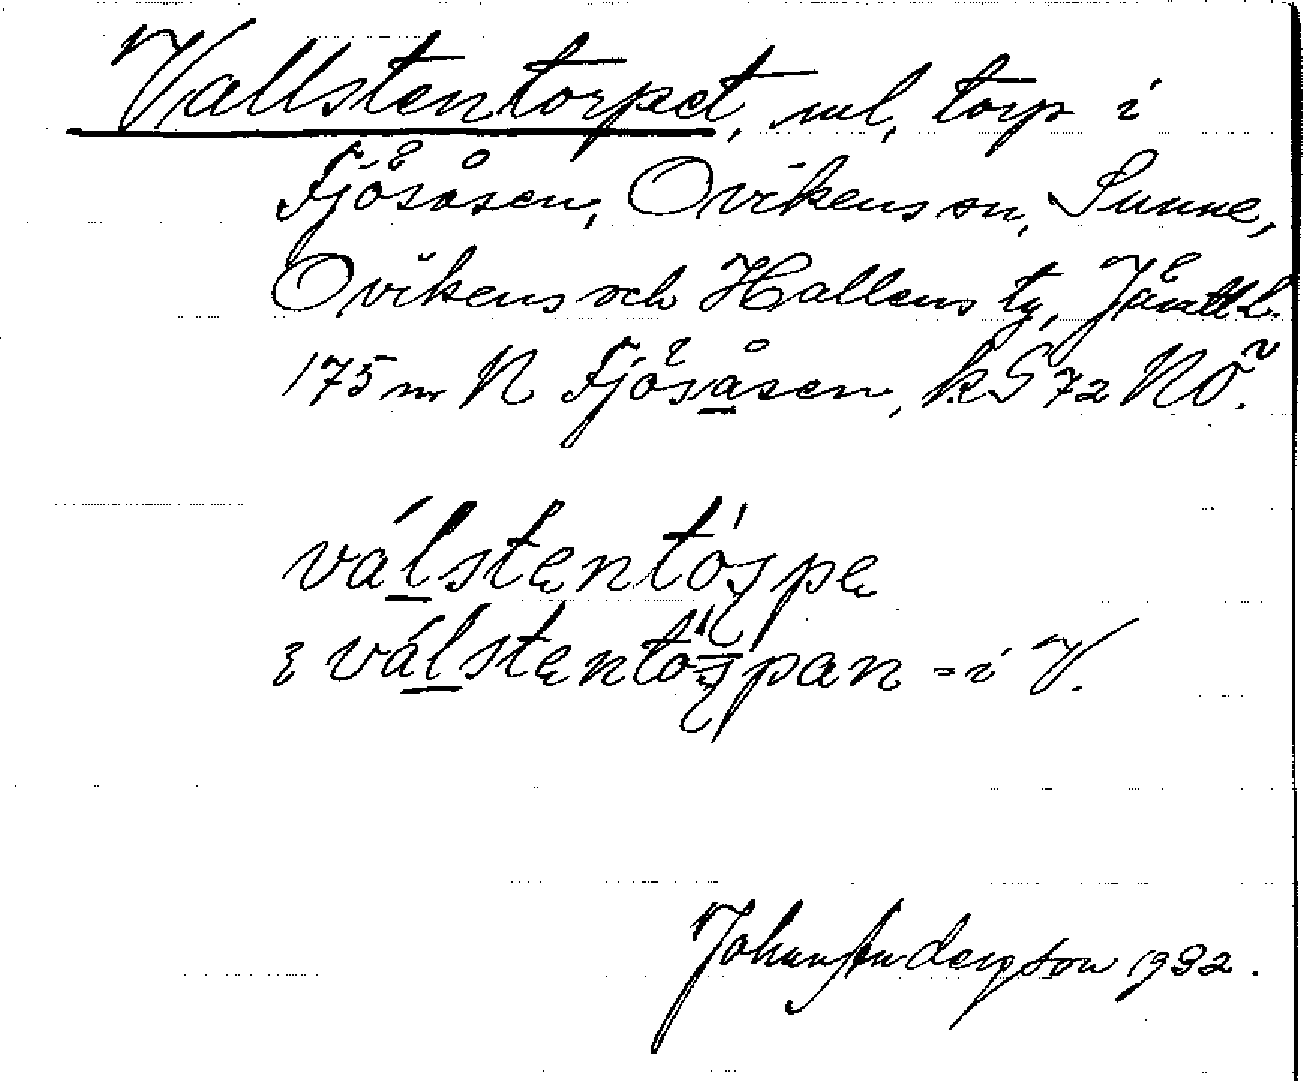 Vallstentorpet, ml, torp i
Fjösåsen, Ovikens sn, Sunne,
Ovikens och Hallens tg, Jämtl.
175 m N Fjösåsen, k.S 72 NO.
válstęntóspę
válstęntóspan = i V.
Johan Anderson 1932.